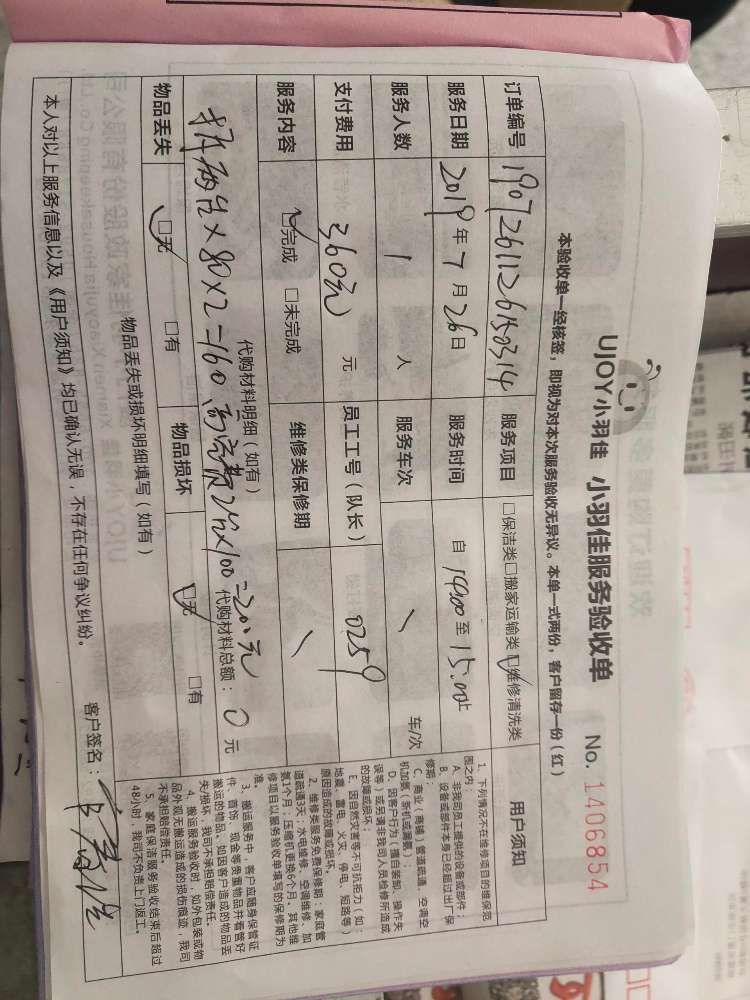 UJOY小羽佳 小羽佳服务验收单 No. 1406854
本验收单一经核签，即视为对本次服务验收无异议。本单一式两份，客户留存一份（红）
订单编号 1907261126150314 服务项目 □保洁类□搬家运输类☑维修清洗类
服务日期 2019年7月26日 服务时间 自14:00至15:00止
服务人数 1 人 服务车次 \ 车/次
支付费用 360元 元 员工工号（队长） 0259
服务内容 ☑完成 □未完成 维修类保修期 \
代购材料明细（如有）
拆两台×80×2=160 高 费2台×100=200元
代购材料总额：0元
物品丢失 ☑无 □有 物品损坏 ☑无 □有
物品丢失或损坏明细填写（如有）
本人对以上服务信息以及《用户须知》均已确认无误，不存在任何争议纠纷。 客户签名：
用户须知
1、下列情况不在维修项目的维保范
围之内：
A、非我司员工提供的设备或部件；
B、设备或部件本身已经超过出厂保
修期；
C、商业（商铺）管道疏通、空调空
机加氨（冬机加漏氨）；
D、因客户行为（擅自装卸、操作失
误等）或另请非我司人员检修所造成
的故障或损坏；
E、因自然灾害等不可抗拒力（如：
地震、雷电、火灾、停电、短路等）
原因造成的故障或损坏。
2、维修类服务免费保修期：家庭管
道疏通3天；水电维修、空调维修、加
氨1个月；压缩机更换6个月，其他维
修项目以服务验收单填写的保修期为
准。
3、搬运服务中，客户应随身保管证
件、首饰、现金等贵重物品并看管好
搬运的物品。如因客户造成的物品丢
失/损坏，我司不承担赔偿责任。
4、搬运服务验收时，如外包装或物
品外观无搬运造成的损伤痕迹，我司
不承担赔偿责任。
5、家庭保洁服务验收结束后超过
48小时，我司不负责上门返工。